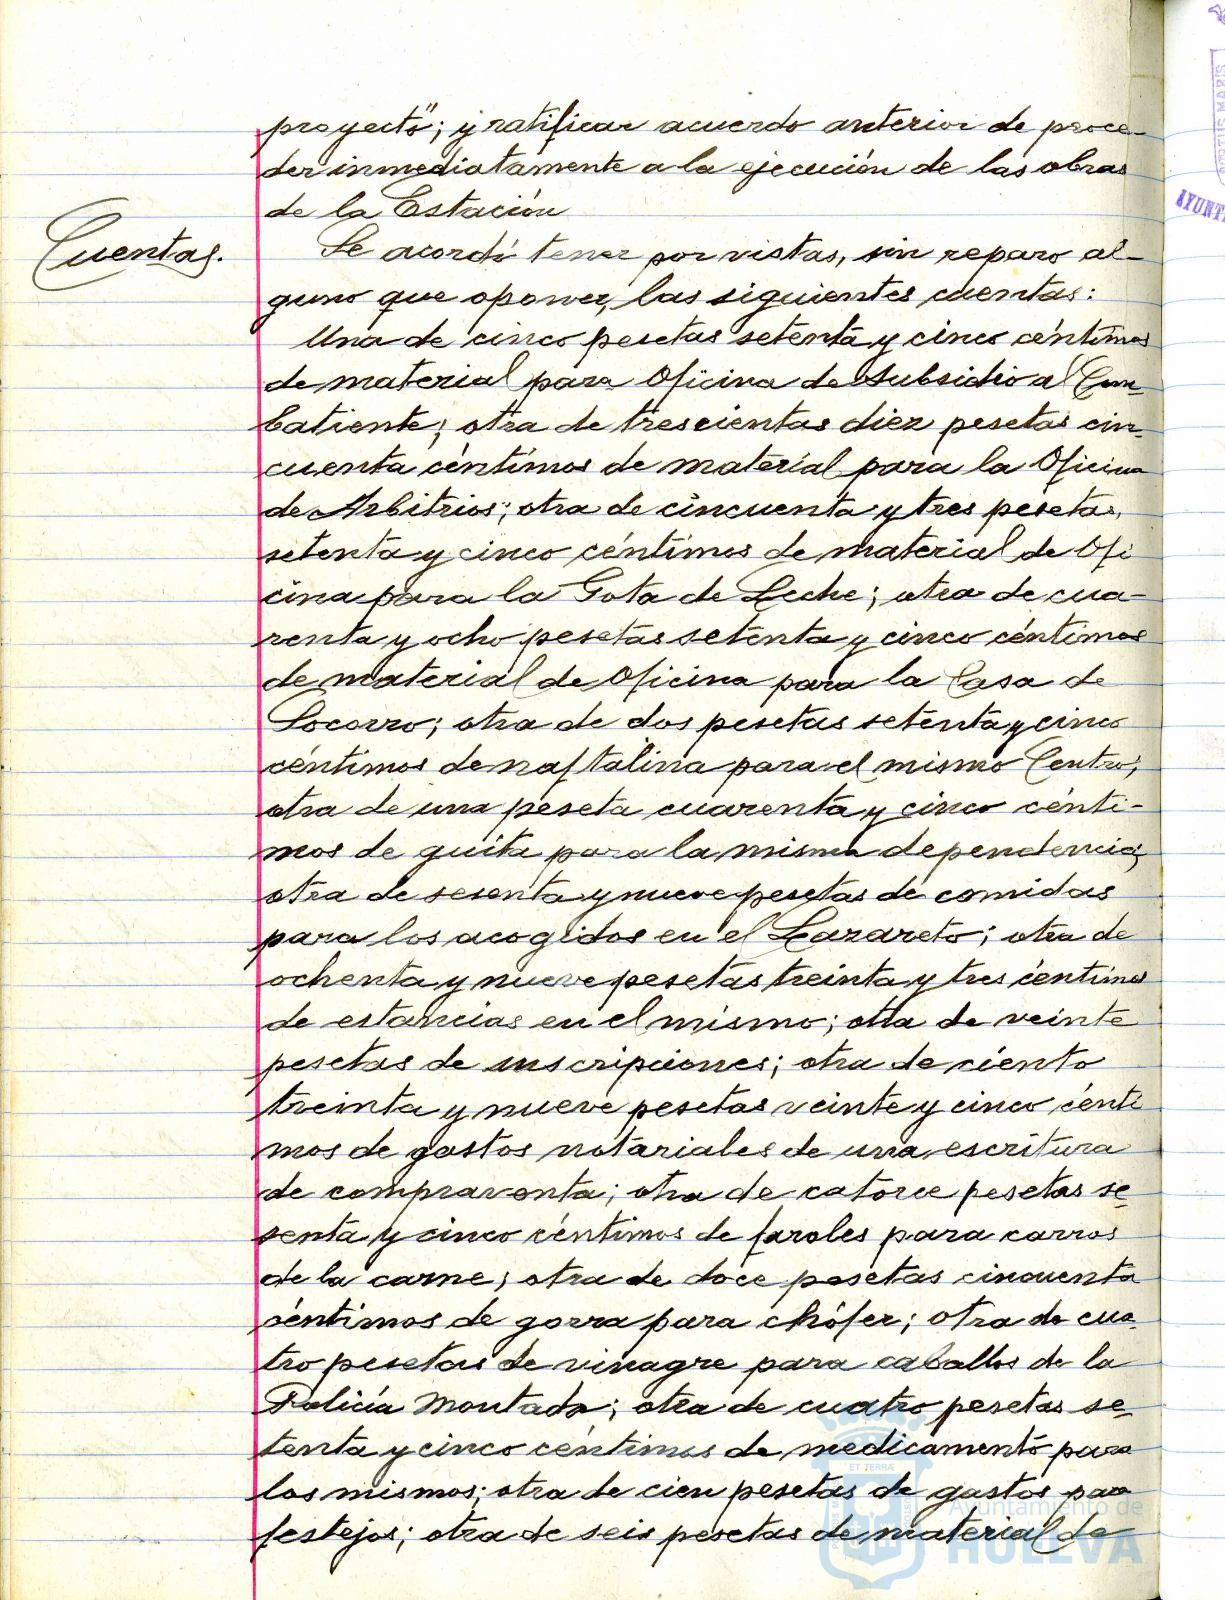 proyecto"; y ratificar acuerdo anterior de proce-
der inmediatamente a la ejecución de las obras
de la Estación
Cuentas.
Se acordó tener por vistas, sin reparo al-
guno que oponer, las siguientes cuentas:
Una de cinco pesetas setenta y cinco céntimos
de material para Oficina de Subsidio al Com-
batiente; otra de trescientas diez pesetas cin-
cuenta céntimos de material para la Oficina
de Arbitrios; otra de cincuenta y tres pesetas,
setenta y cinco céntimos de material de Ofi
cina para la Gota de Leche; otra de cua-
renta y ocho pesetas setenta y cinco céntimos
de material de Oficina para la Casa de
Socorro; otra de dos pesetas setenta y cinco
céntimos de naftalina para el mismo Centro;
otra de una peseta cuarenta y cinco cénti-
mos de guita para la misma dependencia;
otra de sesenta y nueve pesetas de comidas
para los acogidos en el Lazareto; otra de
ochenta y nueve pesetas treinta y tres céntimos
de estancias en el mismo; otra de veinte
pesetas de inscripciones; otra de ciento
treinta y nueve pesetas veinte y cinco cénti
mos de gastos notariales de una escritura
de compraventa; otra de catorce pesetas se-
senta y cinco céntimos de faroles para carros
de la carne; otra de doce pesetas cincuenta
céntimos de gorra para chófer; otra de cua-
tro pesetas de vinagre para caballos de la
Policía Montada; otra de cuatro pesetas se-
tenta y cinco céntimos de medicamento para
los mismos; otra de cien pesetas de gastos para
festejos; otra de seis pesetas de material de
ET TERRÆ
Ayuntamiento de
HUELVA
PORTUS MARIS
AYUNT